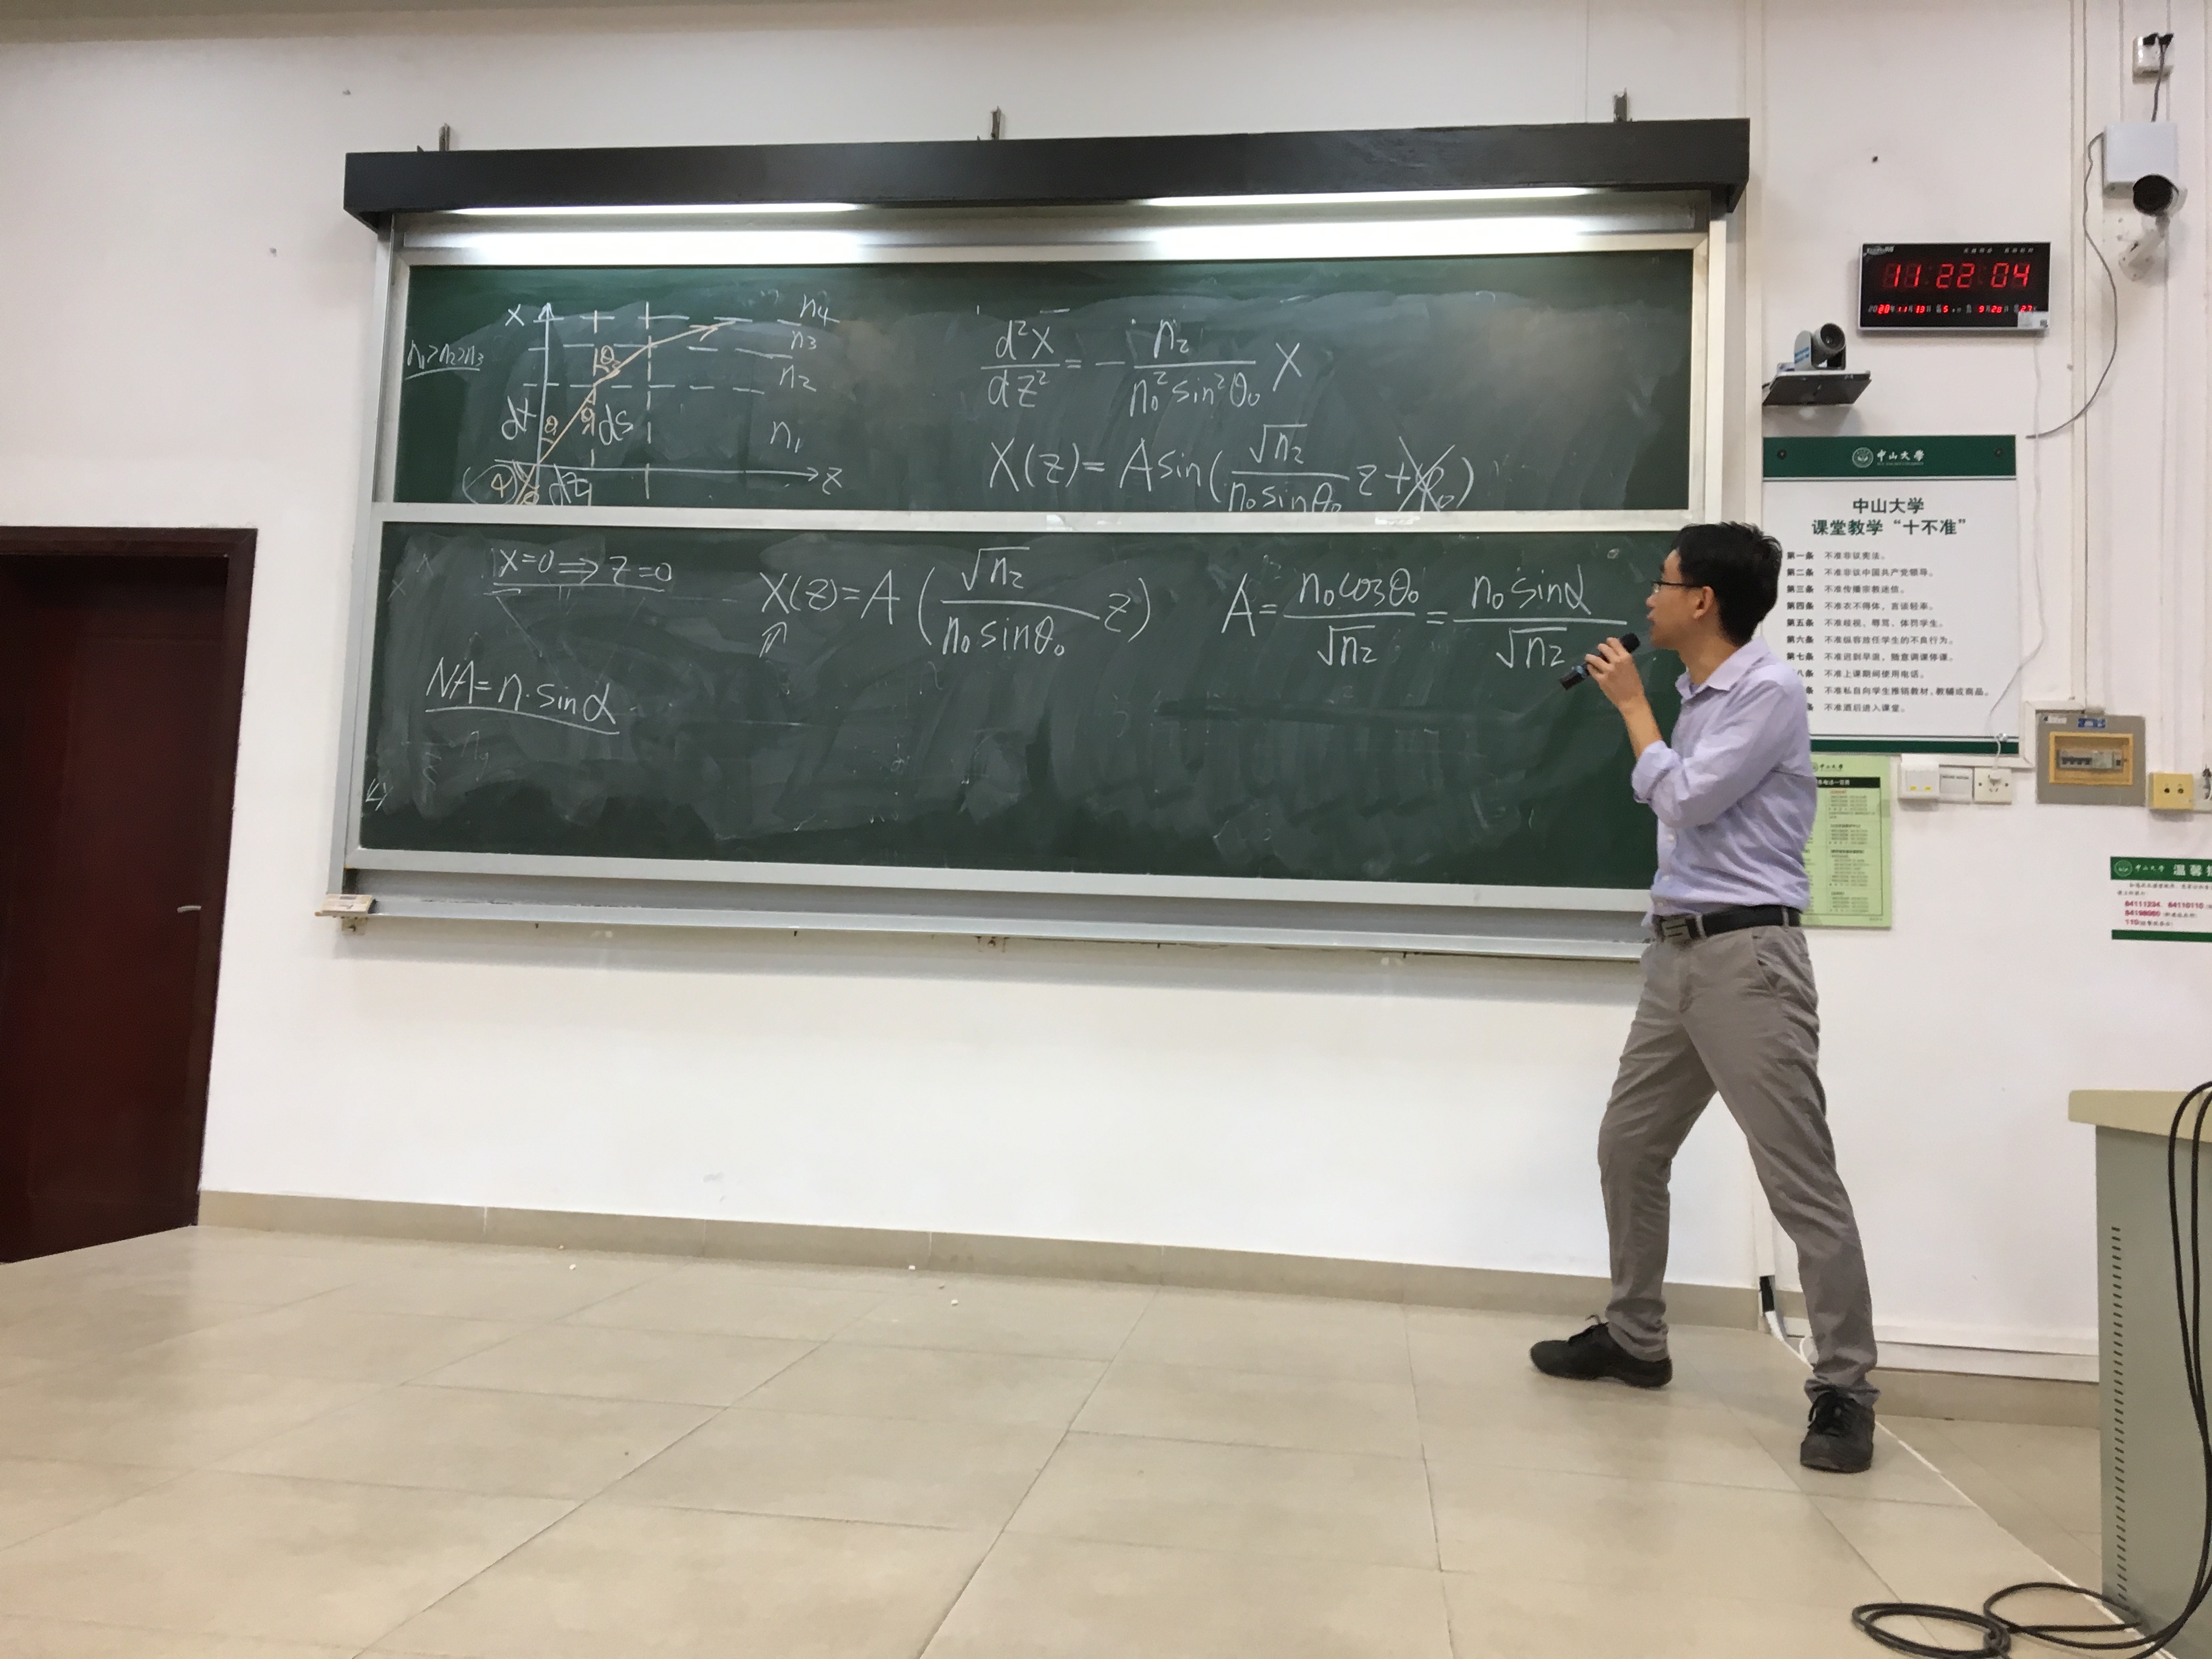 x
n₄
n₃
n₁>n₂>n₃
n₂
θ
dx
θ
θ
ds
n₁
z
dz
d²x/dz² = - n₂/(n₀² sin²θ₀) x
x(z) = A sin(√n₂/(n₀ sinθ₀) z + φ₀)
x=0 ⇒ z=0
x(z) = A (√n₂/(n₀ sinθ₀) z)
A = n₀cosθ₀/√n₂ = n₀ sinα/√n₂
NA = n·sinα
11:22:04
中山大学
中山大学
课堂教学“十不准”
第一条 不准非议宪法。
第二条 不准非议中国共产党领导。
第三条 不准传播宗教迷信。
第四条 不准衣不得体，言谈轻率。
第五条 不准歧视、辱骂、体罚学生。
第六条 不准纵容放任学生的不良行为。
第七条 不准迟到早退，随意调课停课。
八条 不准上课期间使用电话。
条 不准私自向学生推销教材、教辅或商品。
不准酒后进入课堂。
中山大学
中山大学 温馨
84111234、84110110
110